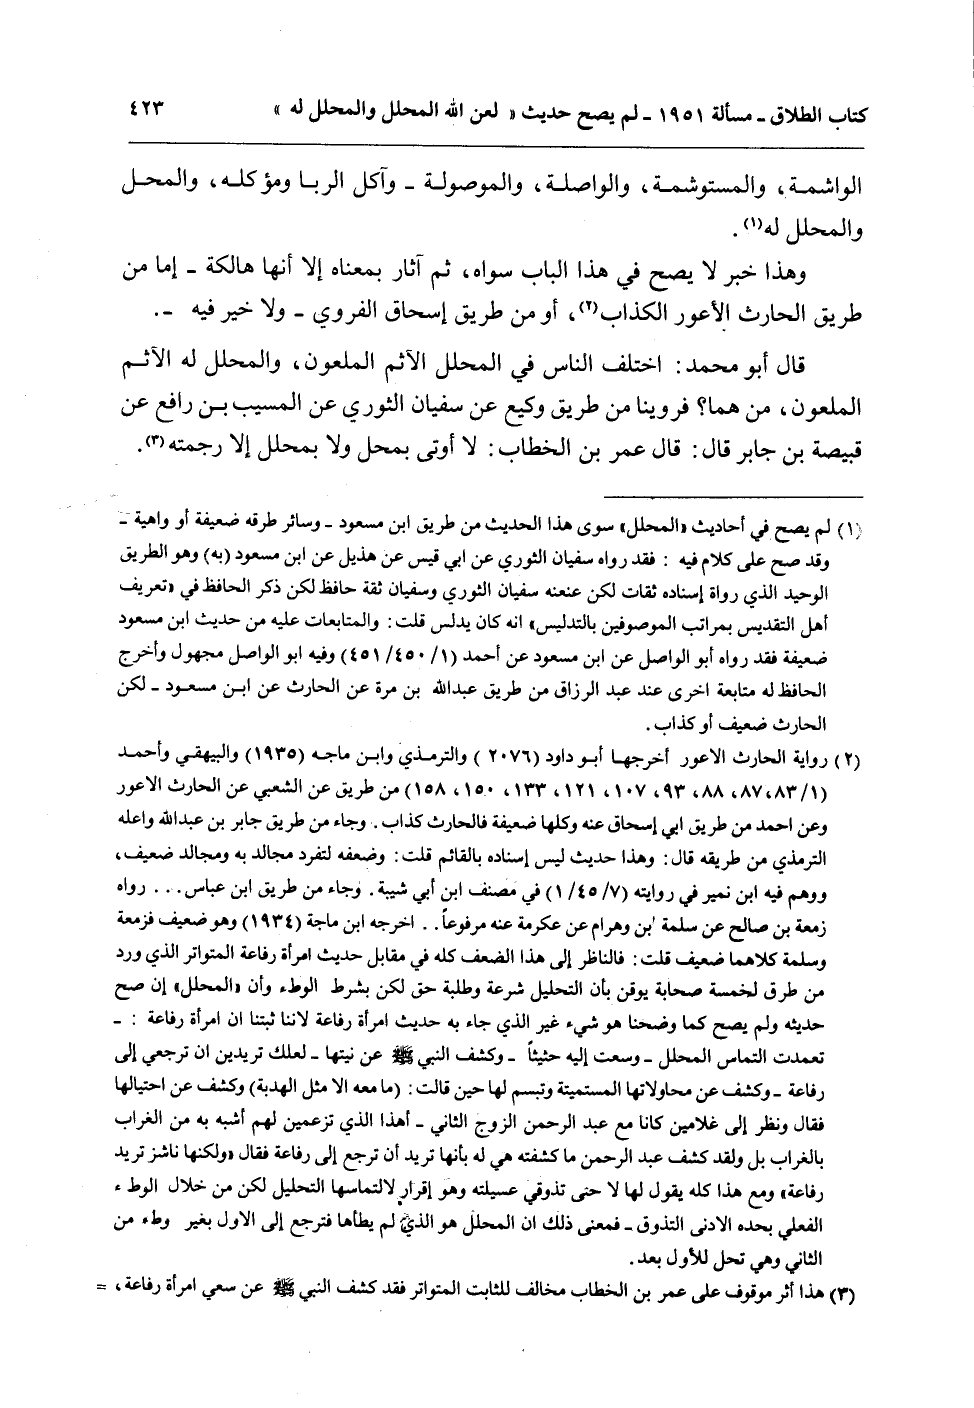 كتاب الطلاق ـ مسألة ١٩٥١ ـ لم يصح حديث « لعن الله المحلل والمحلل له » ٤٢٣
الواشمة، والمستوشمة، والواصلة، والموصولة ـ وآكل الربا ومؤكله، والمحل
والمحلل له(١).
وهذا خبر لا يصح في هذا الباب سواه، ثم آثار بمعناه إلا أنها هالكة ـ إما من
طريق الحارث الأعور الكذاب(٢)، أو من طريق إسحاق الفروي ـ ولا خير فيه ـ.
قال أبو محمد: اختلف الناس في المحلل الآثم الملعون، والمحلل له الآثم
الملعون، من هما؟ فروينا من طريق وكيع عن سفيان الثوري عن المسيب بن رافع عن
قبيصة بن جابر قال: قال عمر بن الخطاب: لا أوتى بمحل ولا بمحلل إلا رجمته(٣).
(١) لم يصح في أحاديث «المحلل» سوى هذا الحديث من طريق ابن مسعود ـ وسائر طرقه ضعيفة أو واهية ـ
وقد صح على كلام فيه : فقد رواه سفيان الثوري عن ابي قيس عن هذيل عن ابن مسعود (به) وهو الطريق
الوحيد الذي رواة إسناده ثقات لكن عنعنه سفيان الثوري وسفيان ثقة حافظ لكن ذكر الحافظ في «تعريف
أهل التقديس بمراتب الموصوفين بالتدليس» انه كان يدلس قلت: والمتابعات عليه من حديث ابن مسعود
ضعيفة فقد رواه أبو الواصل عن ابن مسعود عن أحمد (١/ ٤٥٠/ ٤٥١) وفيه ابو الواصل مجهول وأخرج
الحافظ له متابعة اخرى عند عبد الرزاق من طريق عبدالله بن مرة عن الحارث عن ابن مسعود ـ لكن
الحارث ضعيف أو كذاب.
(٢) رواية الحارث الاعور أخرجها أبو داود (٢٠٧٦ ) والترمذي وابن ماجه (١٩٣٥) والبيهقي وأحمد
(١/ ٨٣، ٨٧، ٨٨، ٩٣، ١٠٧، ١٢١، ١٣٣، ١٥٠، ١٥٨) من طريق عن الشعبي عن الحارث الاعور
وعن احمد من طريق ابي إسحاق عنه وكلها ضعيفة فالحارث كذاب. وجاء من طريق جابر بن عبدالله واعله
الترمذي من طريقه قال: وهذا حديث ليس إسناده بالقائم قلت: وضعفه لتفرد مجالد به ومجالد ضعيف،
ووهم فيه ابن نمير في روايته (٧/ ٤٥/ ١) في مصنف ابن أبي شيبة. وجاء من طريق ابن عباس... رواه
زمعة بن صالح عن سلمة بن وهرام عن عكرمة عنه مرفوعاً.. اخرجه ابن ماجة (١٩٣٤) وهو ضعيف فزمعة
وسلمة كلاهما ضعيف قلت: فالناظر إلى هذا الضعف كله في مقابل حديث امرأة رفاعة المتواتر الذي ورد
من طرق لخمسة صحابة يوقن بأن التحليل شرعة وطلبة حق لكن بشرط الوطء وأن «المحلل» إن صح
حديثه ولم يصح كما وضحنا هو شيء غير الذي جاء به حديث امرأة رفاعة لاننا ثبتنا ان امرأة رفاعة : ـ
تعمدت التماس المحلل ـ وسعت إليه حثيثاً ـ وكشف النبي ﷺ عن نيتها ـ لعلك تريدين ان ترجعي إلى
رفاعة ـ وكشف عن محاولاتها المستميتة وتبسم لها حين قالت: (ما معه الا مثل الهدبة) وكشف عن احتيالها
فقال ونظر إلى غلامين كانا مع عبد الرحمن الزوج الثاني ـ أهذا الذي تزعمين لهم أشبه به من الغراب
بالغراب بل ولقد كشف عبد الرحمن ما كشفته هي له بأنها تريد أن ترجع إلى رفاعة فقال «ولكنها ناشز تريد
رفاعة» ومع هذا كله يقول لها لا حتى تذوقي عسيلته وهو إقرار لالتماسها التحليل لكن من خلال الوطء
الفعلي بحده الادنى التذوق ـ فمعنى ذلك ان المحلل هو الذي لم يطأها فترجع إلى الاول بغير وطء من
الثاني وهي تحل للأول بعد.
(٣) هذا أثر موقوف على عمر بن الخطاب مخالف للثابت المتواتر فقد كشف النبي ﷺ عن سعي امرأة رفاعة، =